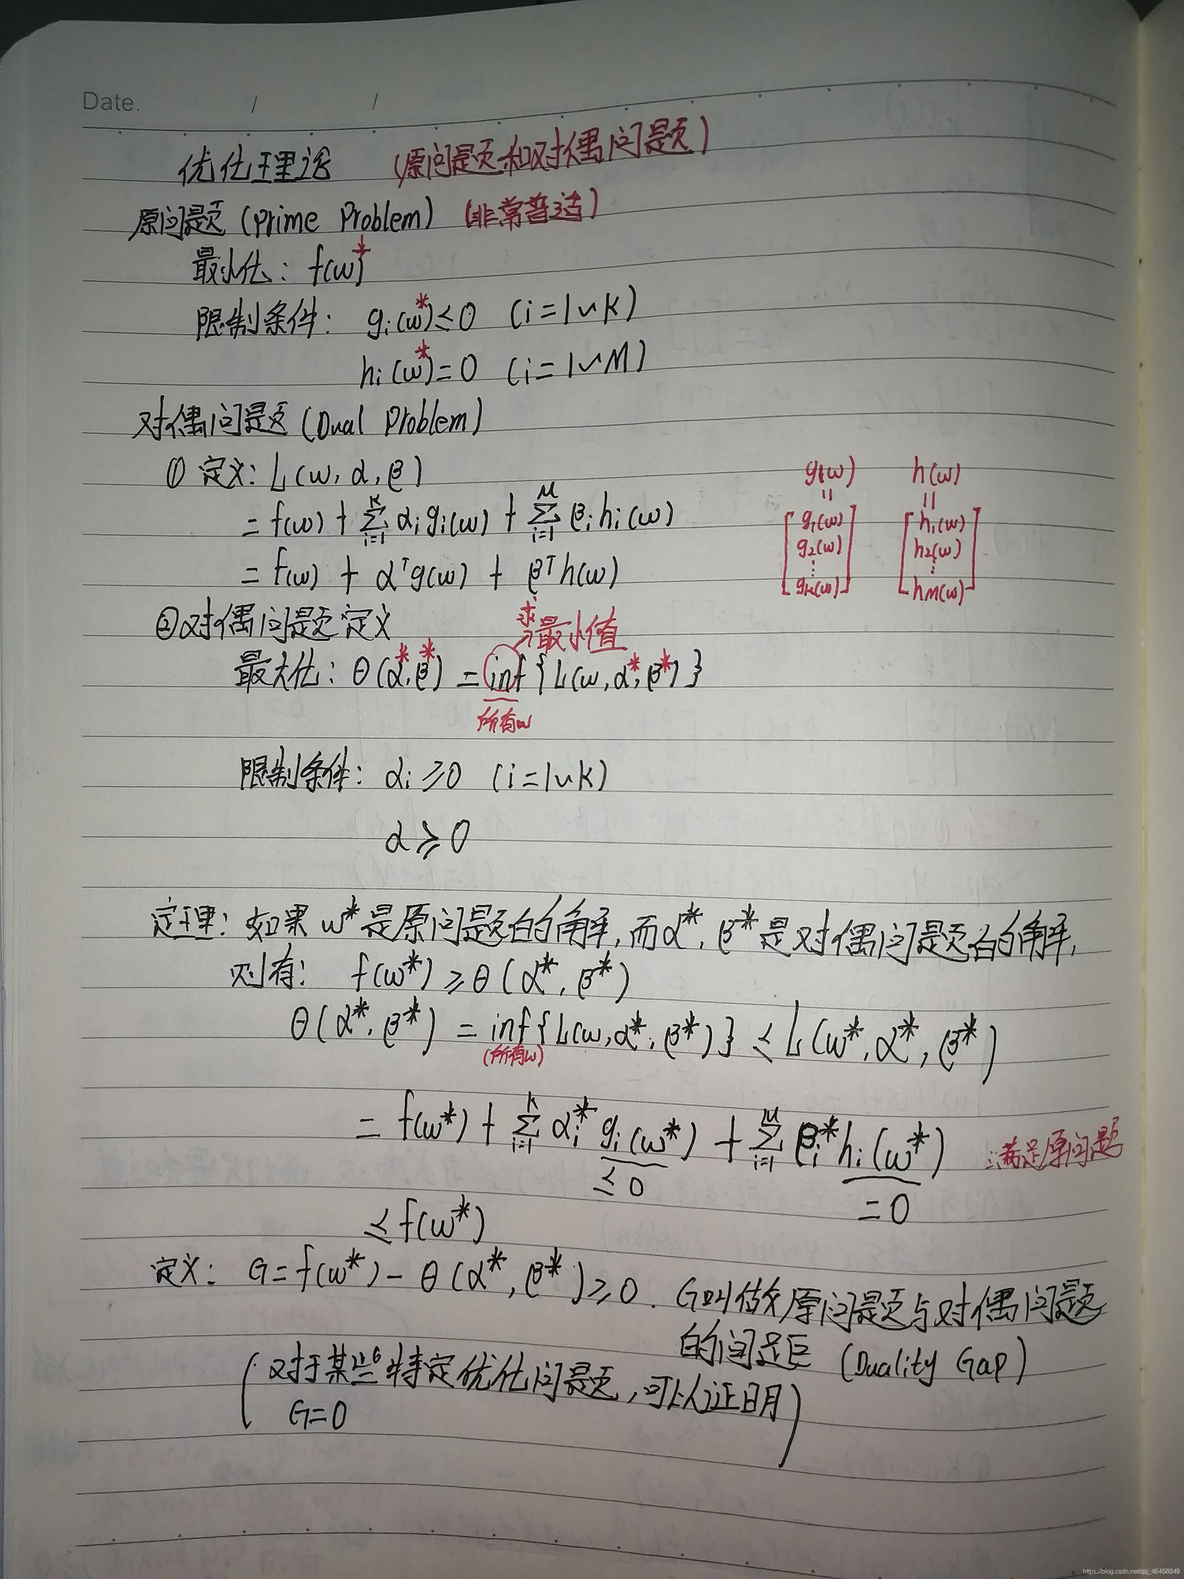 Date. / /
优化理论 (原问题和对偶问题)
原问题 (Prime Problem) (非常普适)
最小化: f(ω)*
限制条件: gi(ω*)≤0 (i=1~K)
hi(ω*)=0 (i=1~M)
对偶问题 (Dual Problem)
① 定义: L(ω, α, β)
= f(ω) + Σ_{i=1}^{K} αi gi(ω) + Σ_{i=1}^{M} βi hi(ω)
= f(ω) + α^T g(ω) + β^T h(ω)
g(ω) h(ω)
= =
[g1(ω) [h1(ω)
g2(ω) h2(ω)
⋮ ⋮
gK(ω)] hM(ω)]
② 对偶问题定义
求最小值
最大化: θ(α*, β*) = inf{L(ω, α*, β*)}
所有ω
限制条件: αi ≥0 (i=1~K)
α ≥ 0
定理: 如果 ω* 是原问题的解, 而 α*, β* 是对偶问题的解,
则有: f(ω*) ≥ θ(α*, β*)
θ(α*, β*) = inf{L(ω, α*, β*)} ≤ L(ω*, α*, β*)
(所有ω)
= f(ω*) + Σ_{i=1}^{K} αi* gi(ω*) + Σ_{i=1}^{M} βi* hi(ω*) ∵满足原问题
≤0 =0
≤ f(ω*)
定义: G = f(ω*) - θ(α*, β*) ≥0. G叫做原问题与对偶问题
的间距 (Duality Gap)
(对于某些特定优化问题, 可以证明
G=0)
https://blog.csdn.net/qq_46456049